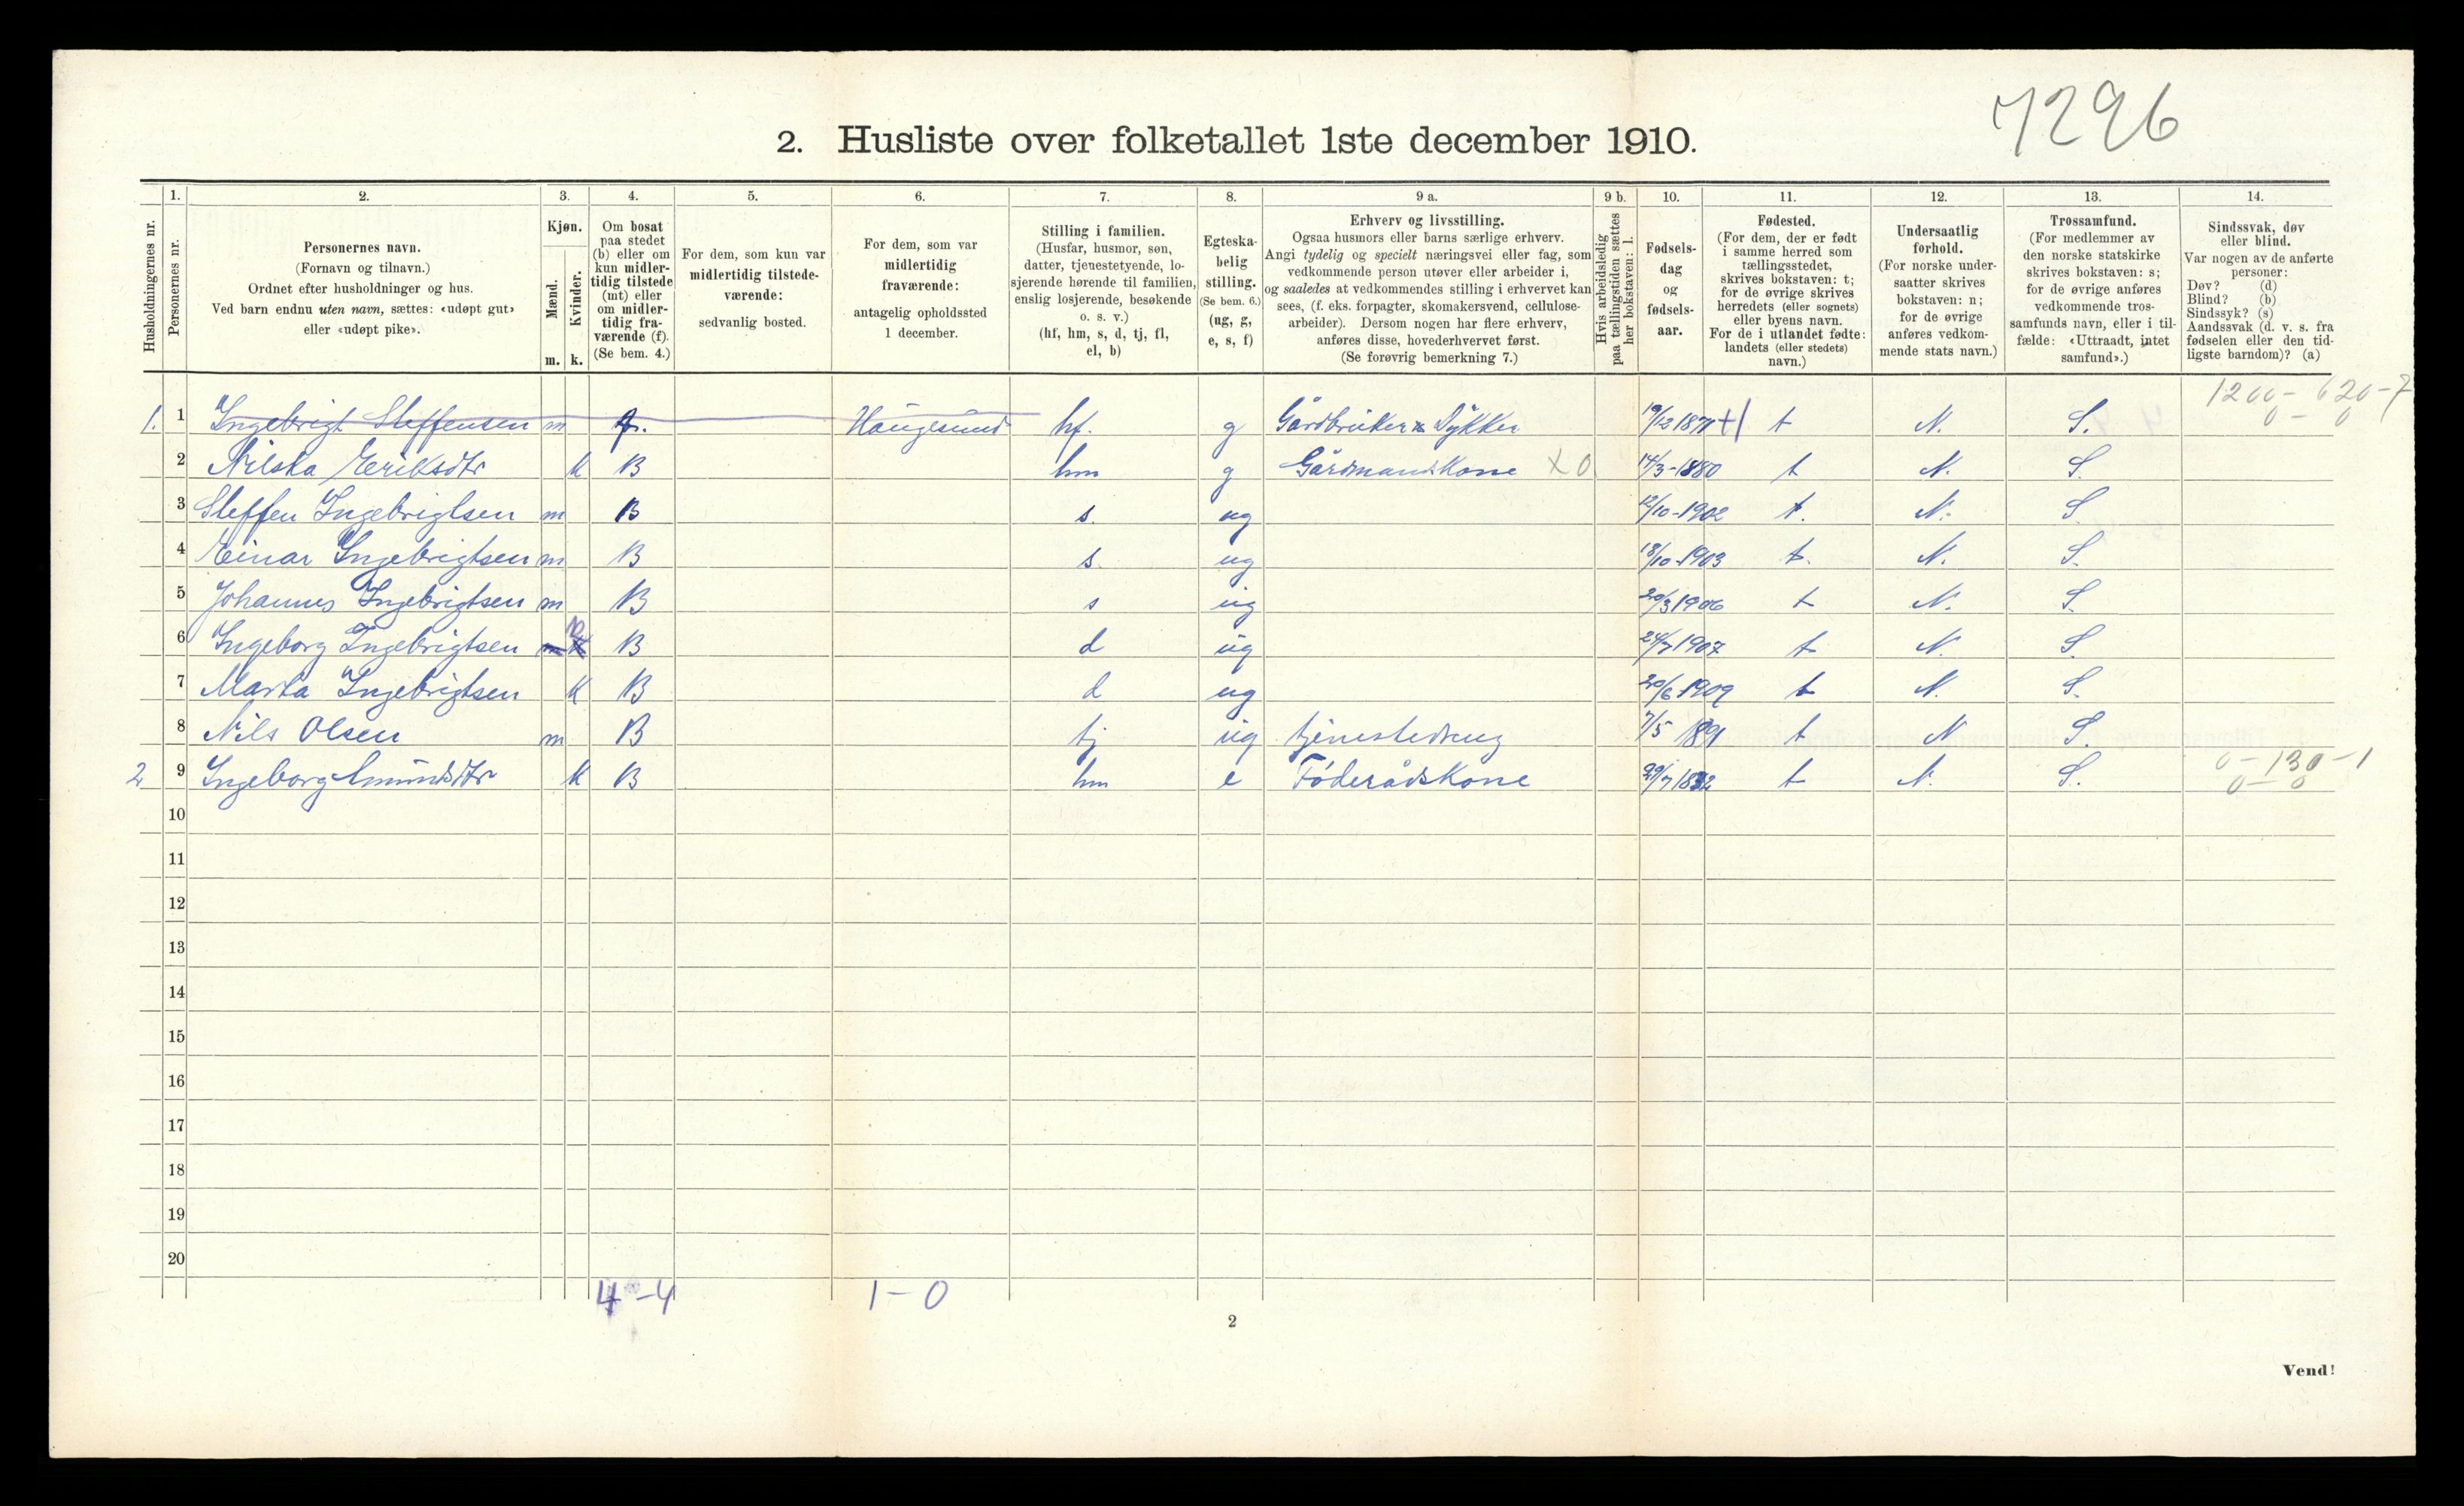 7296
2. Husliste over folketallet 1ste december 1910.
Husholdningernes nr.
1. Personernes nr.
2. Personernes navn.
(Fornavn og tilnavn.)
Ordnet efter husholdninger og hus.
Ved barn endnu uten navn, sættes: «udøpt gut»
eller «udøpt pike».
3. Kjøn.
Mænd. m.
Kvinder. k.
4. Om bosat
paa stedet
(b) eller om
kun midler-
tidig tilstede
(mt) eller
om midler-
tidig fra-
værende (f).
(Se bem. 4.)
5. For dem, som kun var
midlertidig tilstede-
værende:
sedvanlig bosted.
6. For dem, som var
midlertidig
fraværende:
antagelig opholdssted
1 december.
7. Stilling i familien.
(Husfar, husmor, søn,
datter, tjenestetyende, lo-
sjerende hørende til familien,
enslig losjerende, besøkende
o. s. v.)
(hf, hm, s, d, tj, fl,
el, b)
8. Egteska-
belig
stilling.
(Se bem. 6.)
(ug, g,
e, s, f)
9 a. Erhverv og livsstilling.
Ogsaa husmors eller barns særlige erhverv.
Angi tydelig og specielt næringsvei eller fag, som
vedkommende person utøver eller arbeider i,
og saaledes at vedkommendes stilling i erhvervet kan
sees, (f. eks. forpagter, skomakersvend, cellulose-
arbeider). Dersom nogen har flere erhverv,
anføres disse, hovederhvervet først.
(Se forøvrig bemerkning 7.)
9 b. Hvis arbeidsledig
paa tællingstiden sættes
her bokstaven: l.
10. Fødsels-
dag
og
fødsels-
aar.
11. Fødested.
(For dem, der er født
i samme herred som
tællingsstedet,
skrives bokstaven: t;
for de øvrige skrives
herredets (eller sognets)
eller byens navn.
For de i utlandet fødte:
landets (eller stedets)
navn.)
12. Undersaatlig
forhold.
(For norske under-
saatter skrives
bokstaven: n;
for de øvrige
anføres vedkom-
mende stats navn.)
13. Trossamfund.
(For medlemmer av
den norske statskirke
skrives bokstaven: s;
for de øvrige anføres
vedkommende tros-
samfunds navn, eller i til-
fælde: «Uttraadt, intet
samfund».)
14. Sindssvak, døv
eller blind.
Var nogen av de anførte
personer:
Døv? (d)
Blind? (b)
Sindssyk? (s)
Aandssvak (d. v. s. fra
fødselen eller den tid-
ligste barndom)? (a)
1200 - 620 - 7
0 - 0
1. 1 Ingebrigt Steffensen m f. Haugesund hf. g Gårdbruker Dykker 19/12 1871 t N. S.
2 Nilska Eriksdtr k B hm g Gårdmandskone X 0 14/3-1880 t N. S.
3 Steffen Ingebrigtsen m B s. ug 12/10-1902 t. N. S
4 Einar Ingebrigtsen m B s. ug 18/10-1903 t. N. S.
5 Johannes Ingebrigtsen m B s ug 20/3 1906 t N. S.
6 Ingeborg Ingebrigtsen B d ug 24/7 1907 t N. S.
7 Marta Ingebrigtsen k B d ug 20/6-1909 t N. S.
8 Nils Olsen m B tj ug tjenestedreng 7/5 1891 t N S.
2 9 Ingeborg Amundsdtr k B hm e Føderådskone 29/7 1832 t N. S. 0 - 130 - 1
0 - 0
10
11
12
13
14
15
16
17
18
19
20
4 - 4 1 - 0
2
Vend!